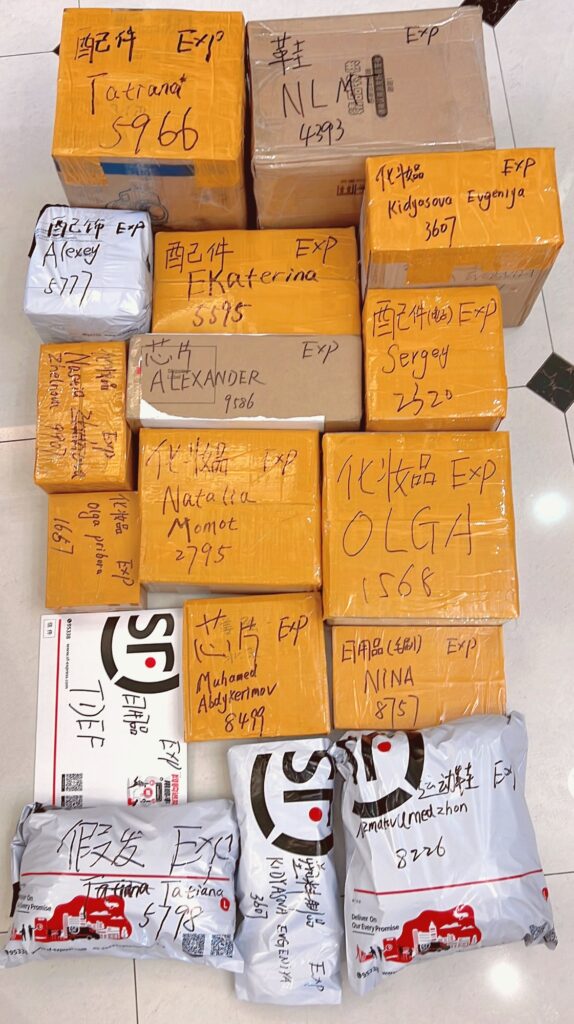 配件 Exp
Tatiana
5966
鞋 Exp
NLMT
4393
化妆品 Exp
Kidyasova Evgeniya
3607
配饰 Exp
Alexey
5777
配件 Exp
EKaterina
5595
配件(电子) Exp
Sergey
2320
芯片 Exp
ALEXANDER
9586
化妆品 Exp
化妆品 Exp
Natalia
Momot
2795
化妆品 Exp
OLGA
1568
化妆品 Exp
Olga pribora
1667
芯片 Exp
Muhamed
Abdykerimov
8499
日用品(毛刷) Exp
NINA
8757
SF
95338
日用品 Exp
TDEF
假发 Exp
Tatiana Tatiana
5798
Deliver On
Every Promise
L
SF
EVGENIYA
3607
Exp
SF
运动鞋 Exp
8226
Deliver On
Our Every Promise
95338
L